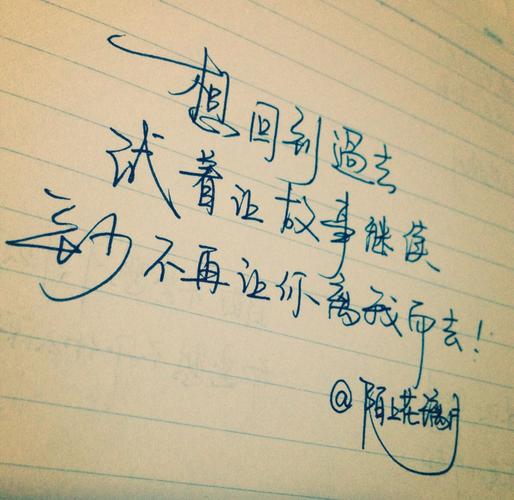 想回到過去
试着让故事继续
至少不再让你离我而去!
@陌上花漓月